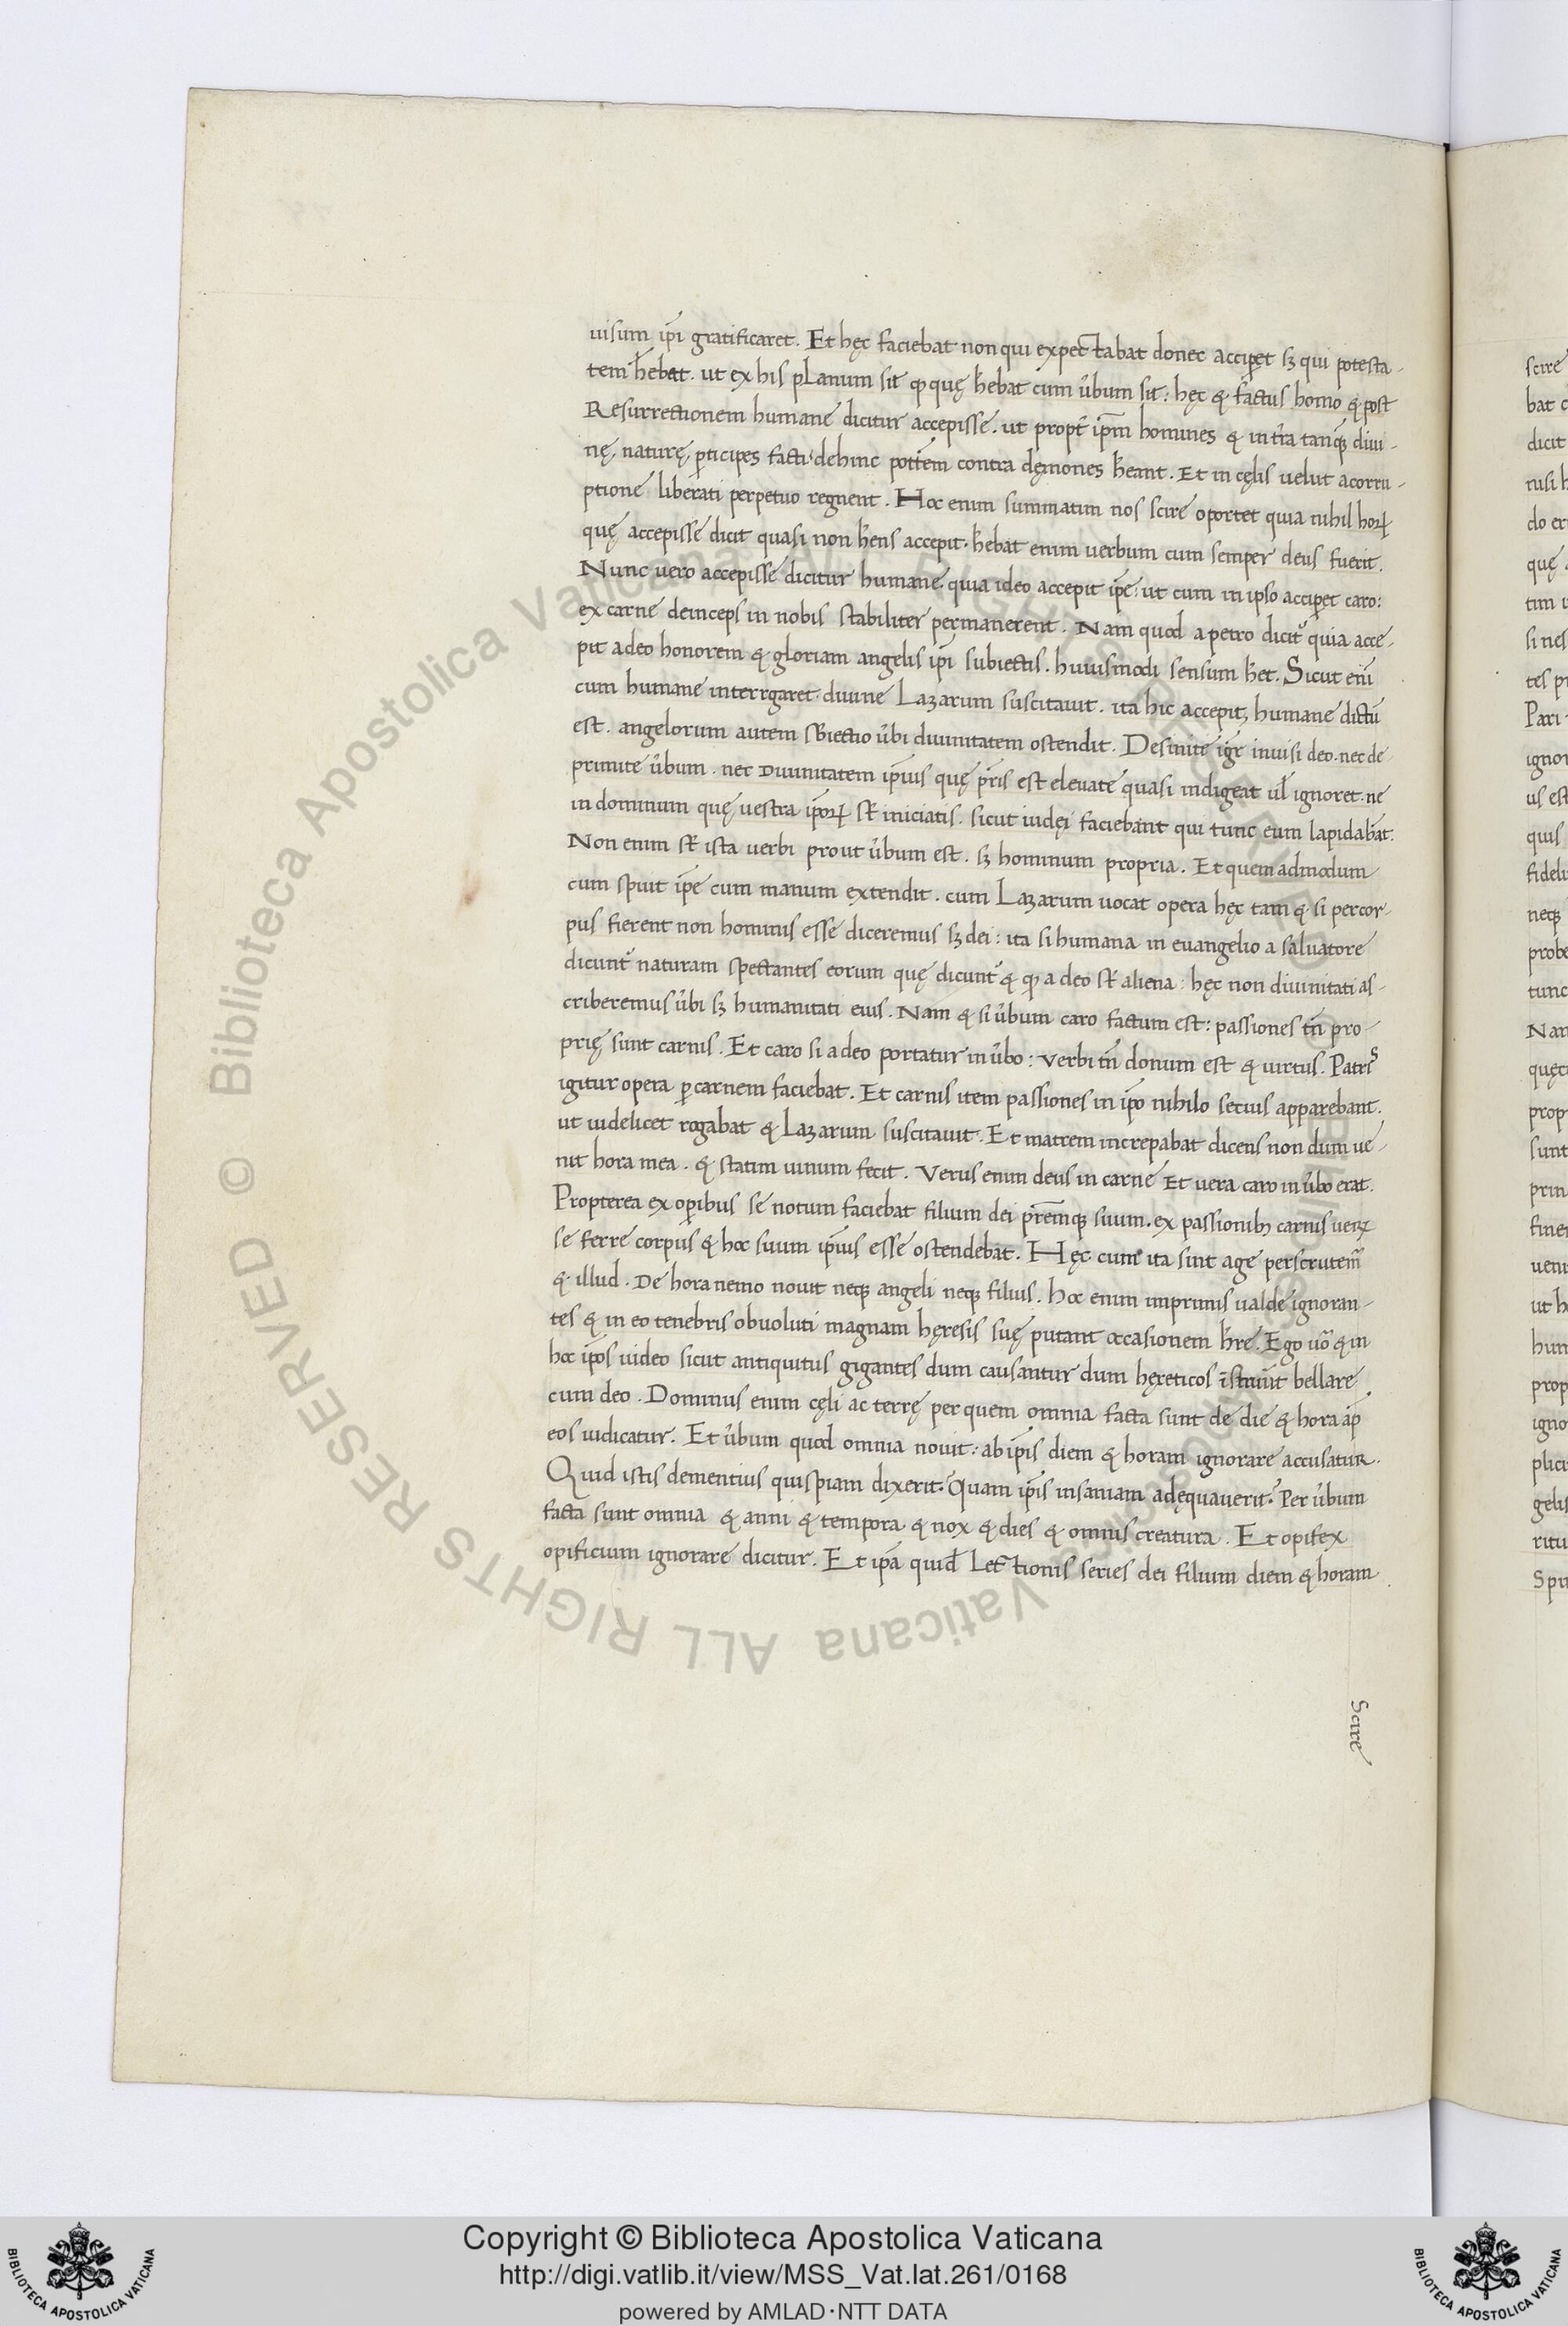 uisum ip̄i gratificaret. Et hęc faciebat non qui expectabat donec accip̲et sꝫ qui potesta-
tem hēbat. ut ex his planum sit ꝙ quę hēbat cum ūbum sit: hęc & factus homo & post
Resurrectionem humane dicitur accepisse. ut propt̄ ip̄m homines & in tr̄a tanqꝫ diui-
nę, naturę, ꝑticipes facti dehinc pot̄tem contra dęmones hēant. Et in cęlis uelut a corru-
ptione liberati perpetuo regnent. Hoc enim summatim nos scire oportet quia nihil horꝝ
quę accepisse dicit quasi non hēns accepit. hēbat enim uerbum cum semper deus fuerit.
Nunc uero accepisse dicitur humane. quia ideo accepit ip̄e: ut cum in ipso accip̲et caro:
ex carne deinceps in nobis stabiliter permanerent. Nam quod a petro dicit᷑ quia acce-
pit a deo honorem & gloriam angelis ip̄i subiectis. huiusmodi sensum hēt. Sicut eni͂
cum humane interrgaret. diuine Lazarum suscitauit. ita hic accepit, humane dictū
est. angelorum autem sbiectio ūbi diuinitatem ostendit. Desinite igr̄ inuisi deo. nec de-
primite ūbum. nec Diuinitatem ip̄ius quę pr̄is est eleuate quasi indigeat ul̄ ignoret. ne
in dominum quę uestra ip̄orꝝ st̄ iniciatis. sicut iudęi faciebant qui tunc eum lapidabāt.
Non enim st̄ ista uerbi prout ūbum est. sꝫ hominum propria. Et quem admodum
cum spuit ip̄e cum manum extendit. cum Lazarum uocat opera hęc tam & si per cor-
pus fierent non hominis esse diceremus sꝫ dei: ita si humana in euangelio a saluatore
dicunt᷑ naturam spectantes eorum quę dicunt᷑ & ꝙ a deo st̄ aliena: hęc non diuinitati as-
criberemus ūbi sꝫ humanitati eius. Nam & si ūbum caro factum est: passiones tn̄ pro-
prię sunt carnis. Et caro si a deo portatur in ūbo: verbi tn̄ donum est & uirtus. Patris
igitur opera ꝑ carnem faciebat. Et carnis item passiones in ip̄o nihilo secius apparebant.
ut uidelicet rogabat & Lazarum suscitauit. Et matrem increpabat dicens non dum ue-
nit hora mea. & statim uinum fecit. Verus enim deus in carne Et uera caro in ūbo erat.
Propterea ex oꝑibus se notum faciebat filium dei pr̄emqꝫ suum. ex passionibꝫ carnis uerę
se ferre corpus & hoc suum ip̄ius esse ostendebat. Hęc cum ita sint age perscrutem᷑
& illud. De hora nemo nouit neqꝫ angeli neqꝫ filius. Hoc enim imprimis ualde ignoran-
tes & in eo tenebris obuoluti magnam hęresis suę putant occasionem hr̄e. Ego uō & in
hoc ip̄os uideo sicut antiquitus gigantes dum causantur dum hęreticos īstruūt bellare
cum deo. Dominus enim cęli ac terrę per quem omnia facta sunt de die & hora ap̄
eos iudicatur. Et ūbum quod omnia nouit: ab ip̄is diem & horam ignorare accusatur.
Quid istis dementius quispiam dixerit. Quam ip̄is insaniam adęquauerit. Per ūbum
facta sunt omnia & anni & tempora & nox & dies & omnis creatura. Et opifex
opificium ignorare dicitur. Et ip̄a quid̄ Lectionis series dei filium diem & horam
Scire
Copyright © Biblioteca Apostolica Vaticana
http://digi.vatlib.it/view/MSS_Vat.lat.261/0168
powered by AMLAD·NTT DATA